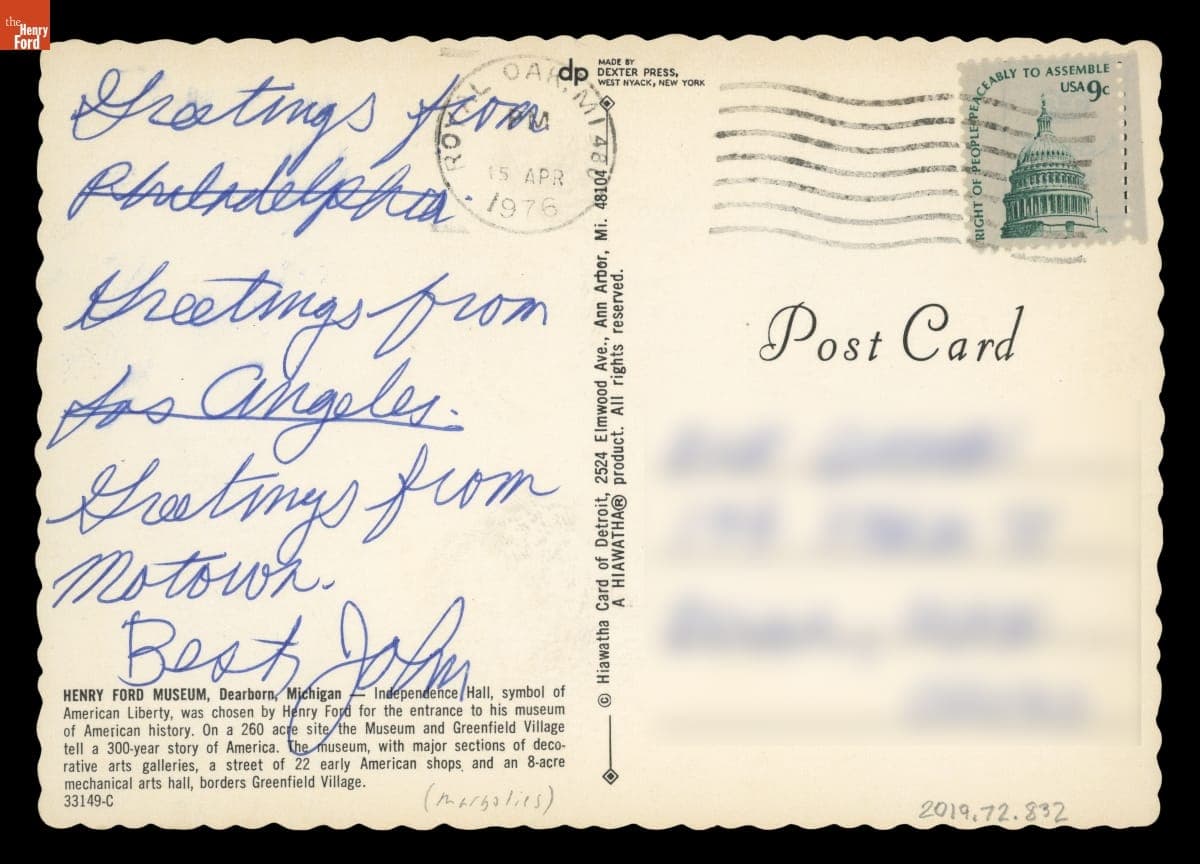 the
Henry
Ford
Greetings from
Philadelphia.
Greetings from
Los Angeles.
Greetings from
Motown.
Best, John
HENRY FORD MUSEUM, Dearborn, Michigan — Independence Hall, symbol of
American Liberty, was chosen by Henry Ford for the entrance to his museum
of American history. On a 260 acre site the Museum and Greenfield Village
tell a 300-year story of America. The museum, with major sections of deco-
rative arts galleries, a street of 22 early American shops and an 8-acre
mechanical arts hall, borders Greenfield Village.
33149-C
(Margolies)
dp
MADE BY
DEXTER PRESS,
WEST NYACK, NEW YORK
© Hiawatha Card of Detroit, 2524 Elmwood Ave., Ann Arbor, Mi. 48104
A HIAWATHA® product. All rights reserved.
ROYAL OAK, MI 480
PM
15 APR
1976
RIGHT OF PEOPLE PEACEABLY TO ASSEMBLE
USA 9c
Post Card
2019.72.832